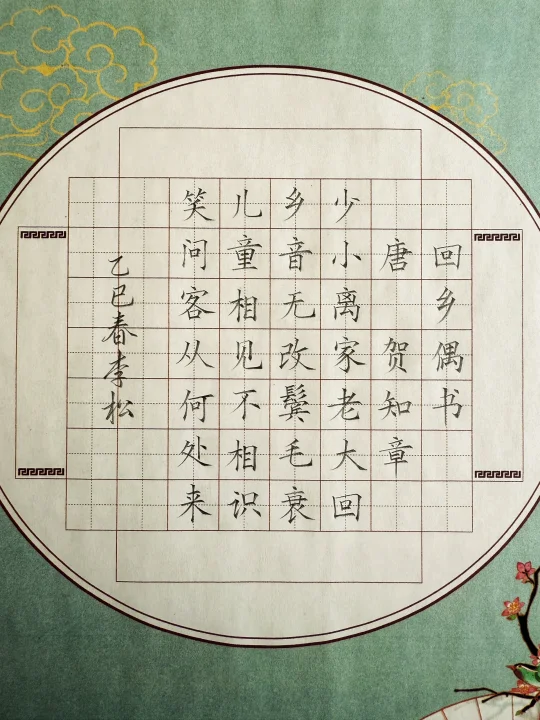 回乡偶书
唐 贺知章
少小离家老大回
乡音无改鬓毛衰
儿童相见不相识
笑问客从何处来
乙巳春李松